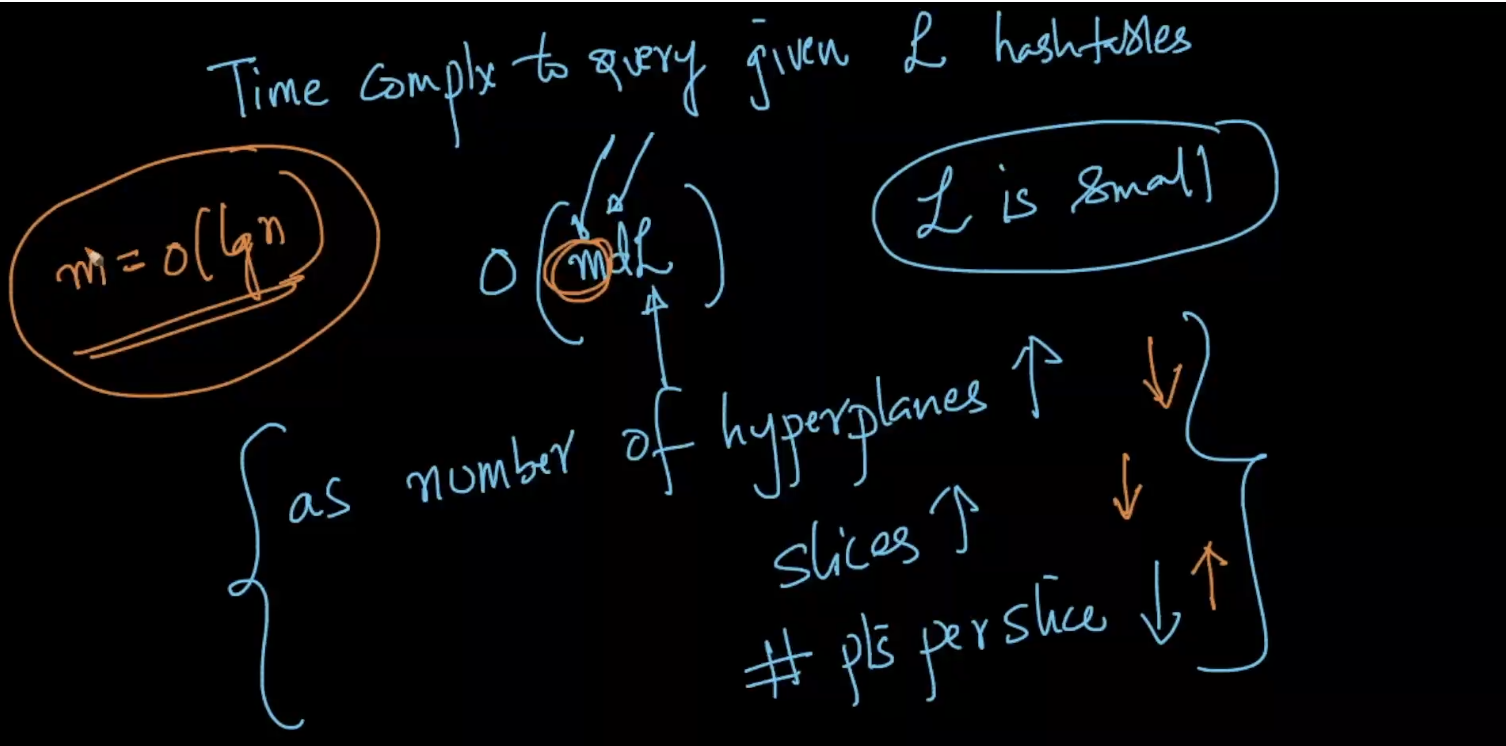 Time Complx to query given L hashtables
m = O(lgn)
O(mdL)
L is small
as number of hyperplanes ↑ ↓
slices ↑ ↓
# pts per slice ↓ ↑